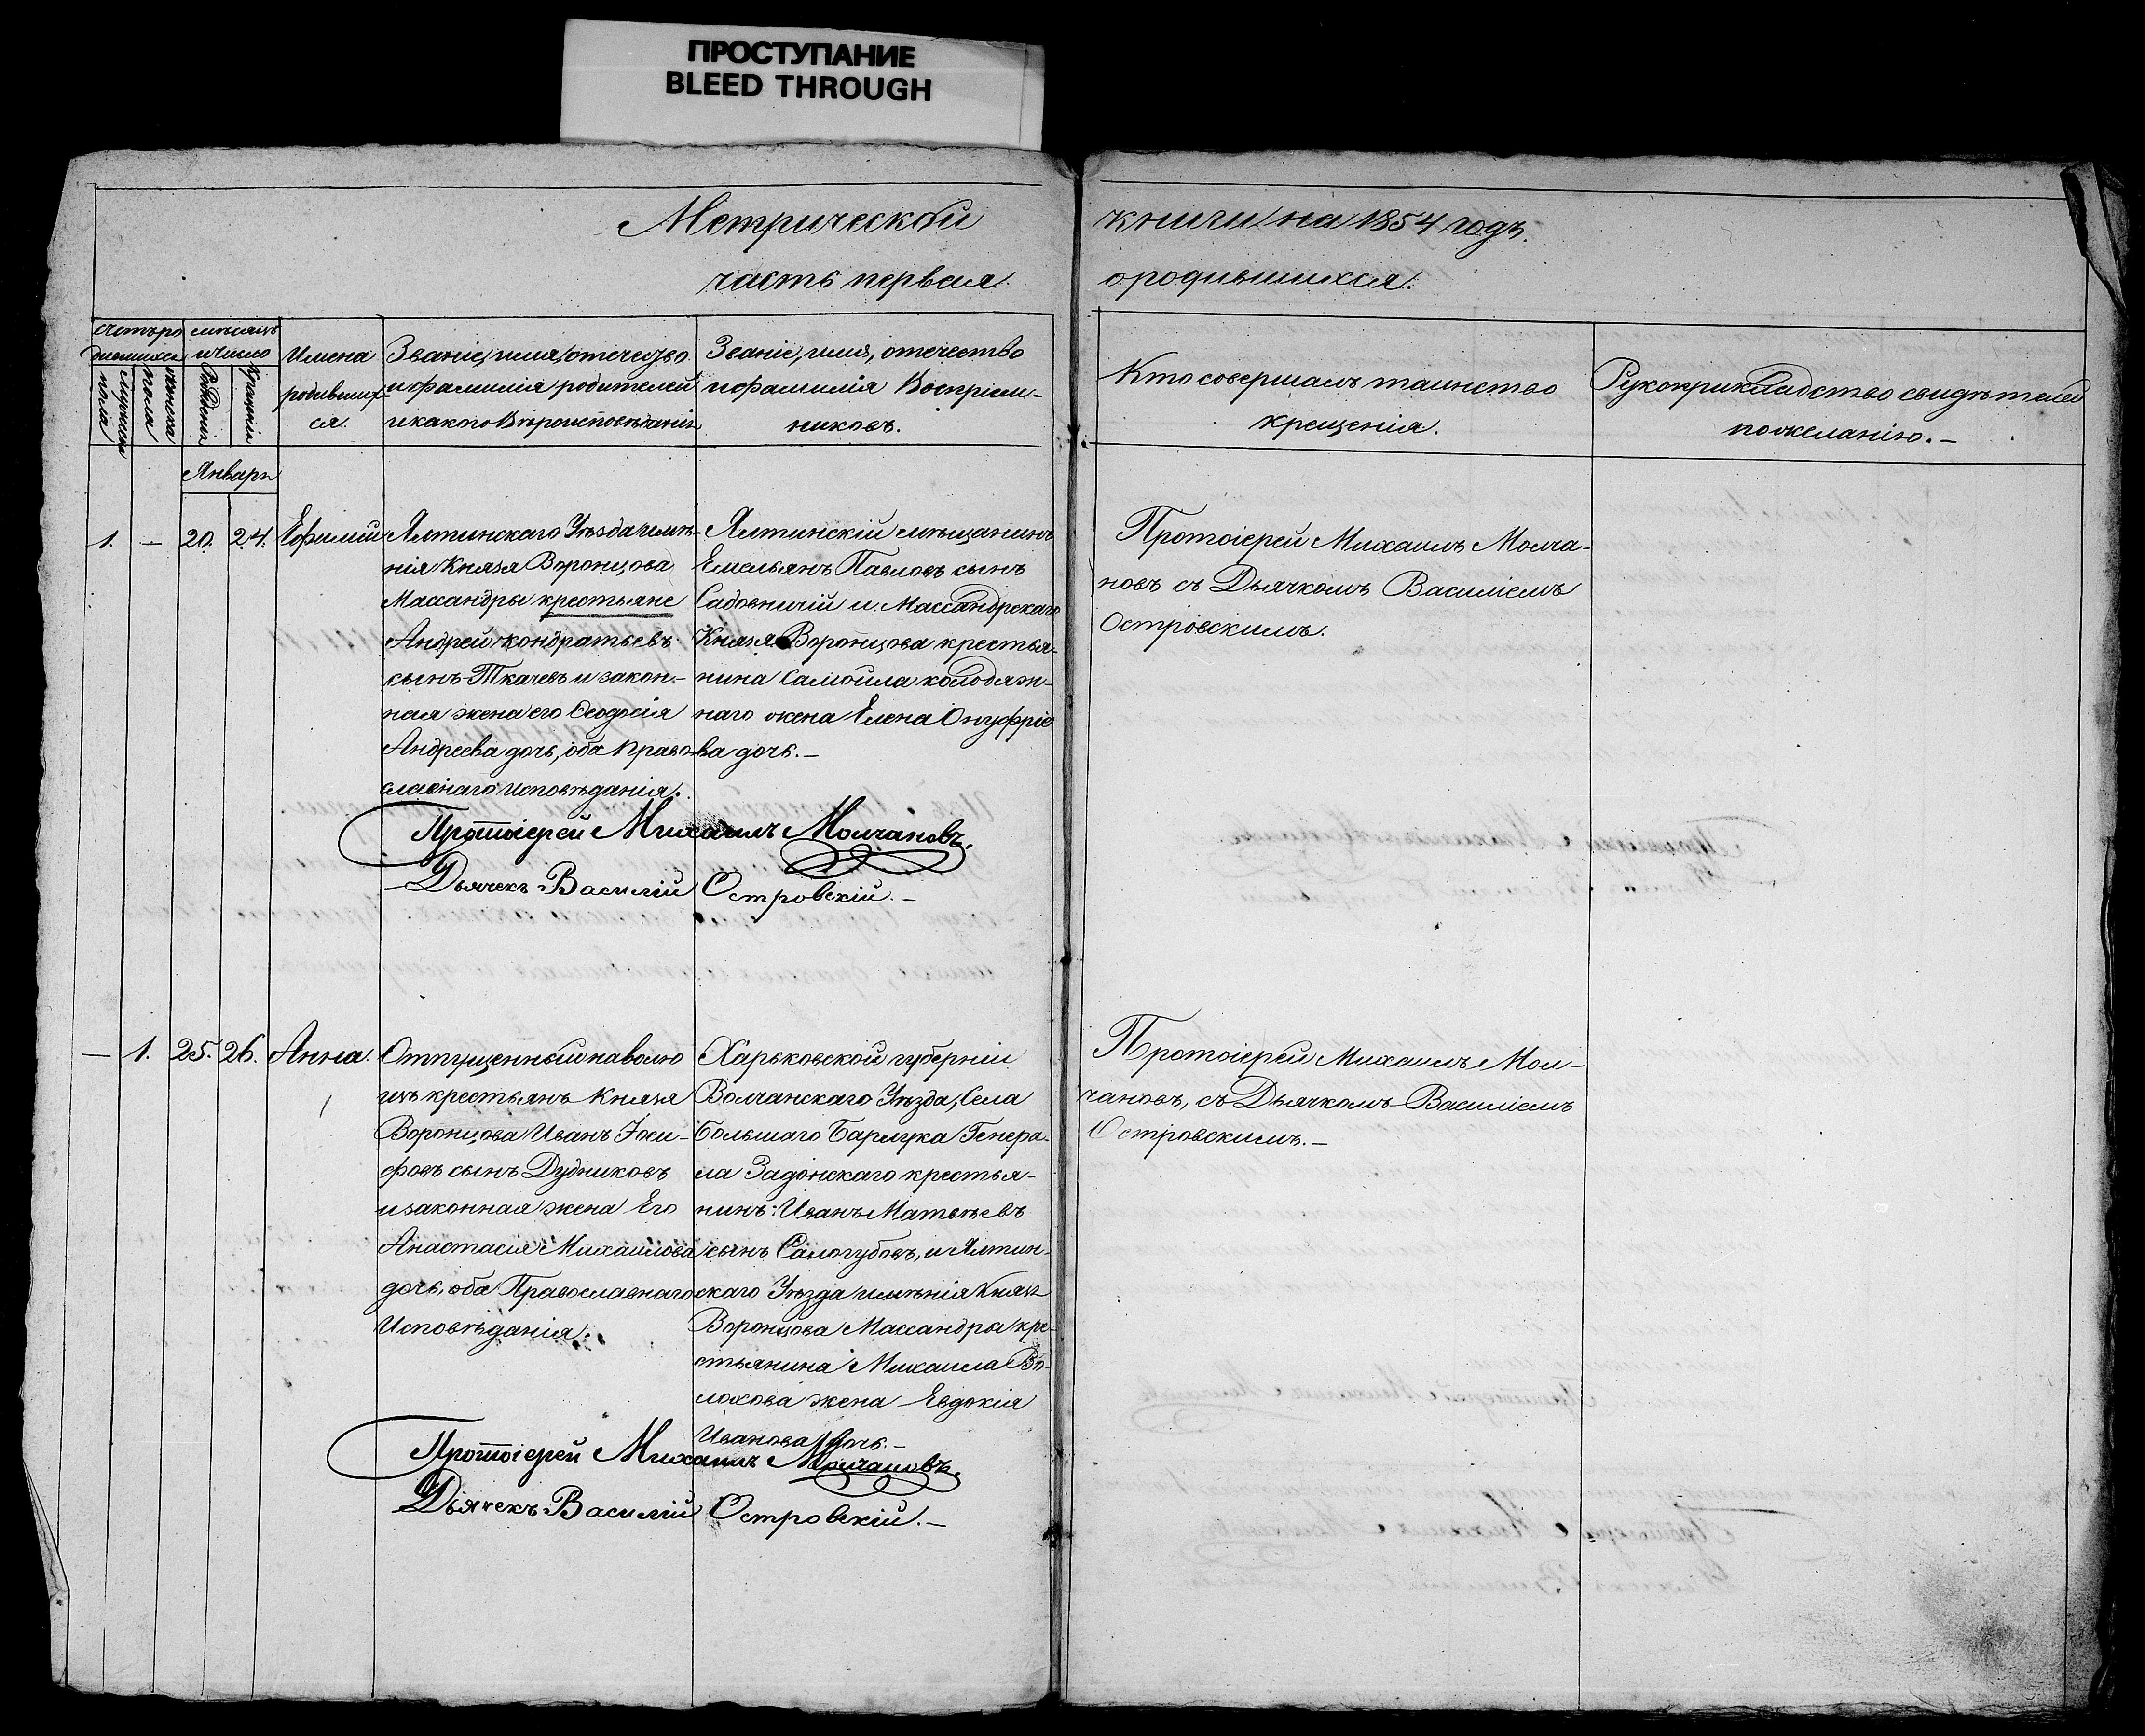 ПРОСТУПАНИЕ
BLEED THROUGH
Метрической
книги на 1854 годъ.
часть первая
о родившихся.
Счетъ ро
дившихся
мужеска
пола
женска
пола
месяцъ
и число
Рождения
Крещения
Имена
родивших-
ся.
Званіе, имя, отечество
и фамилія родителей
и какого Вѣроисповѣданія
Званіе, имя, отечество
и фамилія Воспріем-
никовъ.
Кто совершалъ таинство
крещенія.
Рукоприкладство свидѣтелей
по желанію. –
Январь
1.
–
20.
24.
Ефимій
Ялтинскаго Уѣзда имѣ-
нія Князя Воронцова
Массандры крестьяне
Андрей Кондратьевъ
сынъ Ткачевъ и закон-
ная жена его Ѳеодосія
Андреева дочь, оба Право-
славнаго исповѣданія.
Ялтинскій мѣщанинъ
Емельянъ Павловъ сынъ
Садовничій и Массандрскаго
Князя Воронцова крестья-
нина Самойла Колодяж-
наго жена Елена Онуфріе
ва дочь. –
Протоіерей Михаилъ Молча-
новъ съ Дьячкомъ Василіемъ
Островскимъ.
Протоіерей Михаилъ Молчановъ.
Дьячекъ Василій Островскій. –
–
1.
25.
26.
Анна.
Отпущенный на волю
изъ крестьянъ Князя
Воронцова Иванъ Іоси-
фовъ сынъ Дудниковъ
и законная жена Его
Анастасия Михаилова
дочь, оба Православнаго
Исповѣданія.
Харьковской губерніи
Волчанскаго Уѣзда, Села
Большаго Бурлука Генера-
ла Задонскаго крестья-
нинъ: Иванъ Матвѣевъ
сынъ Самогубовъ, и Ялтин-
скаго Уѣзда имѣнія Князя
Воронцова Массандры кре-
стьянина Михаила Во-
лохова жена Евдокія
Иванова дочь. –
Протоіерей Михаилъ Мол-
чановъ, съ Дьячкомъ Василіемъ
Островскимъ. –
Протоіерей Михаилъ Молчановъ.
Дьячекъ Василій Островскій. –